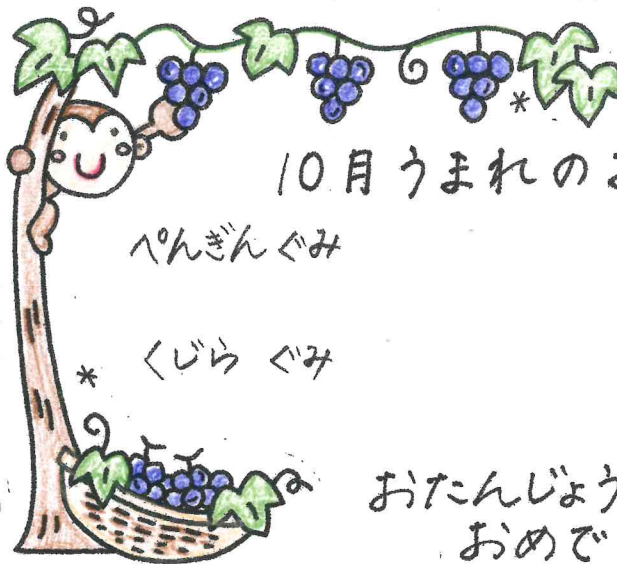 10月うまれのお
ぺんぎんぐみ
くじら ぐみ
おたんじょう
おめで